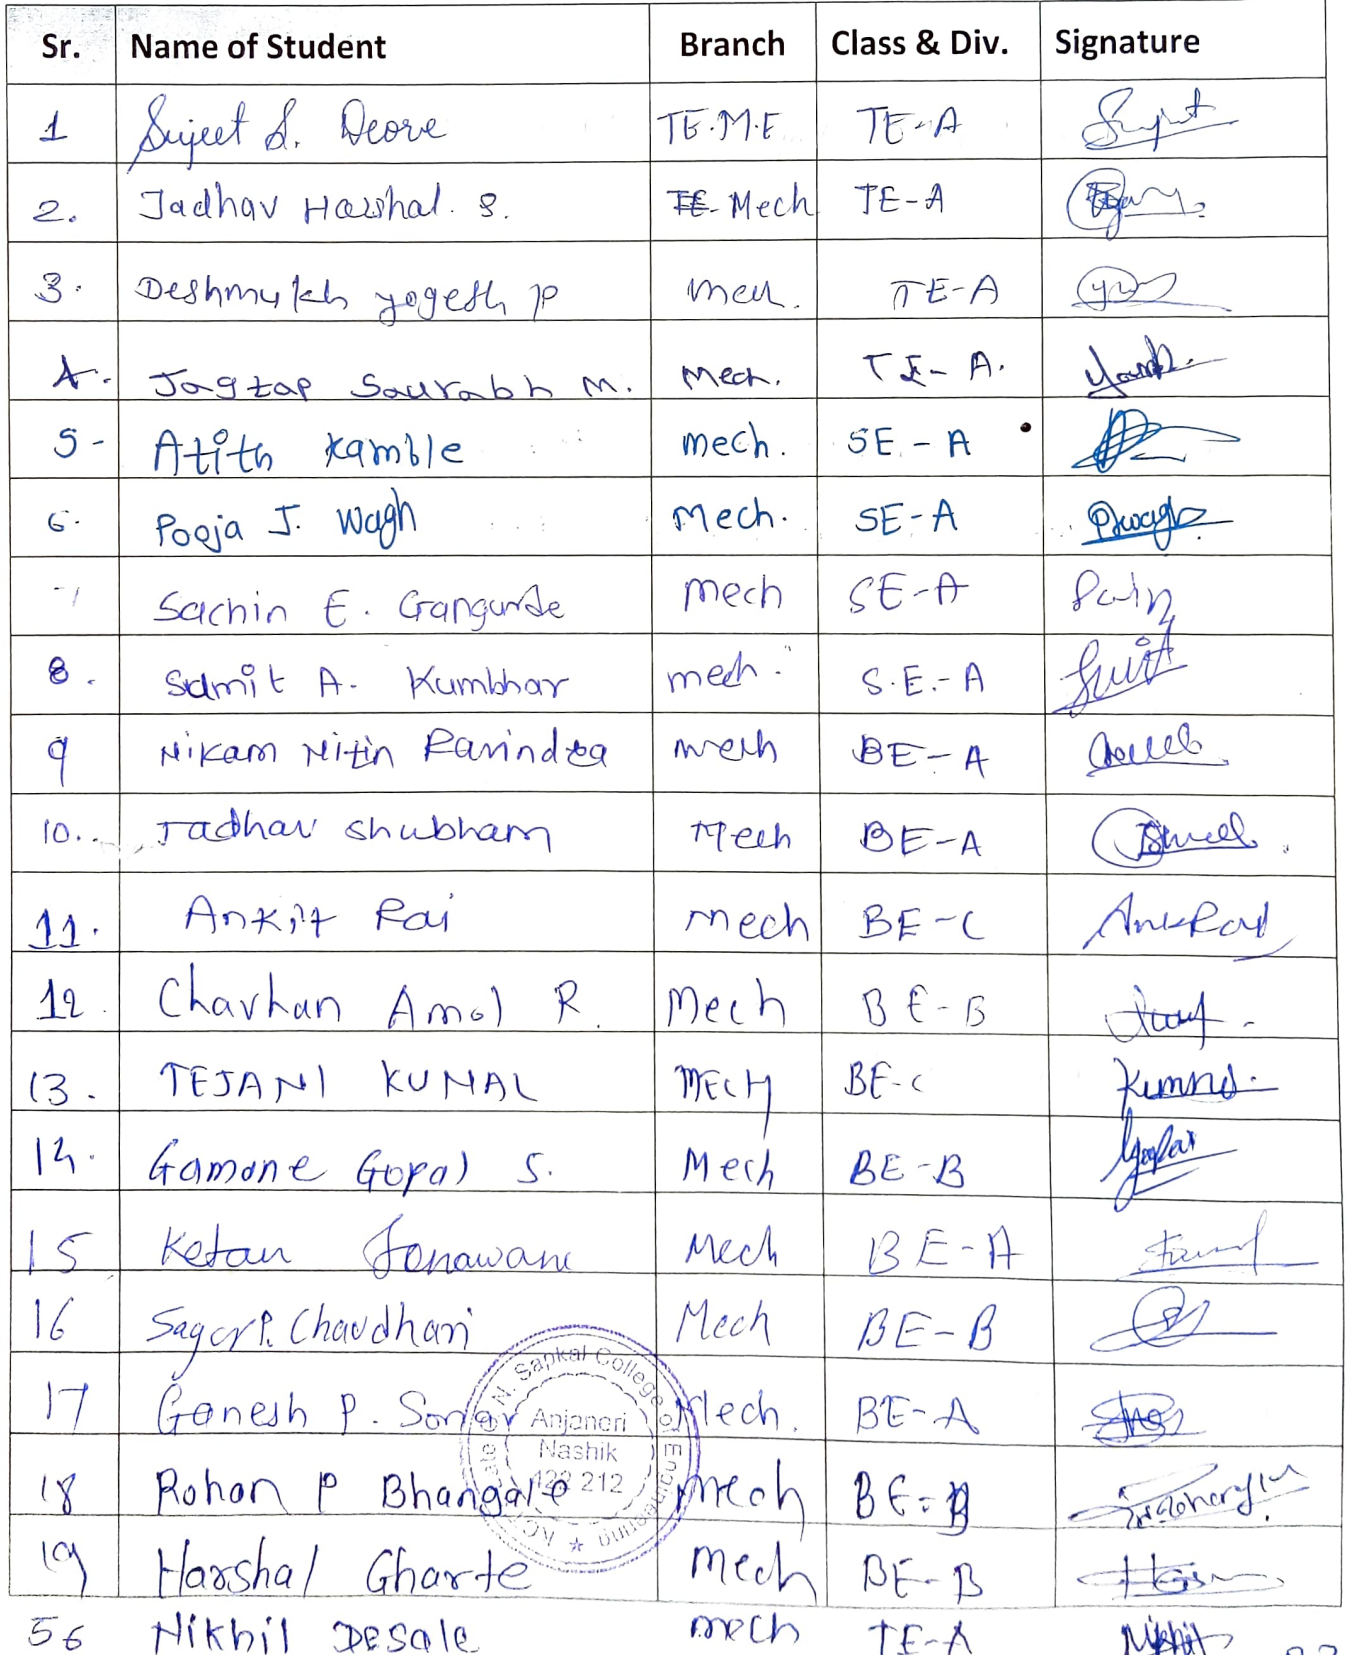 Sr. Name of Student Branch Class & Div. Signature
1 Sujeet S. Deore TE.M.E TE-A Sujeet
2. Jadhav Harshal. S. TE-Mech TE-A
3. Deshmukh yogesh p Mech. TE-A
4. Jagtap Saurabh M. Mech. TE-A.
5- Atith Kamble mech. SE-A
6. Pooja J. Wagh Mech. SE-A Pwagh
Sachin E. Gangurde Mech SE-A
8. Sumit A. Kumbhar mech. S.E.-A Sumit
9 Nikam Nitin Ravindra mech BE-A
10.. Jadhav Shubham Mech BE-A
11. Ankit Rai Mech BE-C AnkRai
12. Chavhan Amol R. Mech BE-B
13. TEJANI KUNAL MECH BE-C
14. Gamane Gopal S. Mech BE-B Gopal
15 Ketan Sonawane Mech BE-A
16 Sagar P. Chaudhari Mech BE-B
17 Ganesh P. Sonar Mech. BE-A
18 Rohan P Bhangale Mech BE-B
19 Harshal Gharte Mech BE-B
56 Nikhil Desale mech TE-A Nikhil
N. Sapkal College of Engineering
Anjaneri
Nashik
212